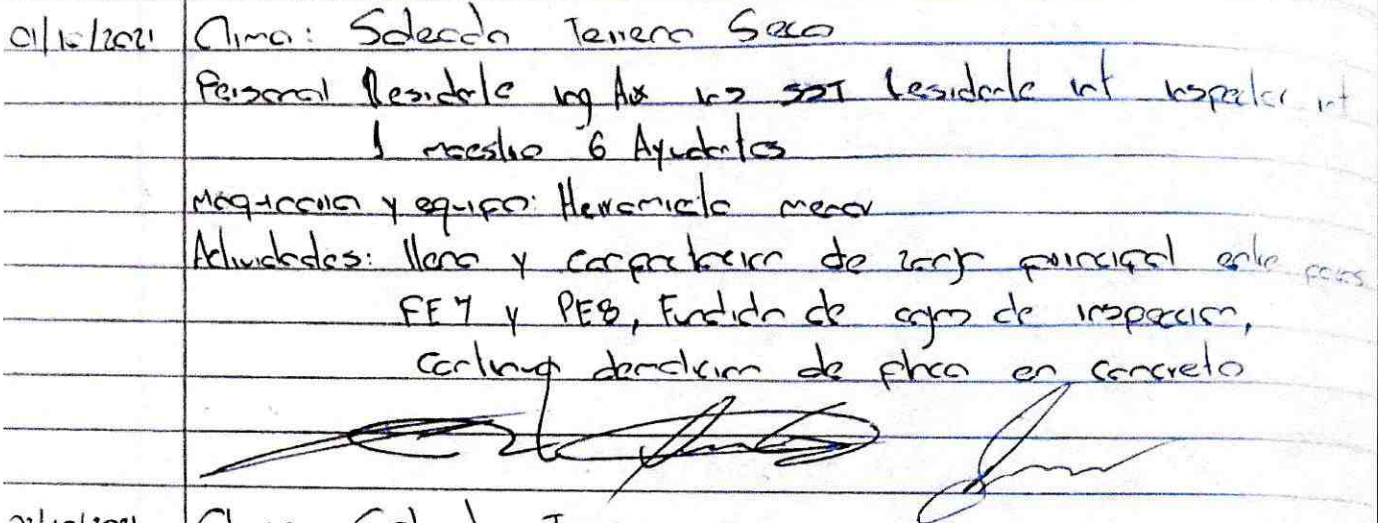 01/10/2021 Clima: Soleado Terreno Seco
Personal Residente ing Aux ing SST Residente int inspector int
1 maestro 6 Ayudantes
Maquinaria y equipo: Herramienta menor
Actividades: lleno y compactacion de zanja principal entre pozos
PE7 y PE8, Fundida de cajas de inspeccion,
Continua demolicion de placa en concreto
02/10/2021 Clima: Soleado